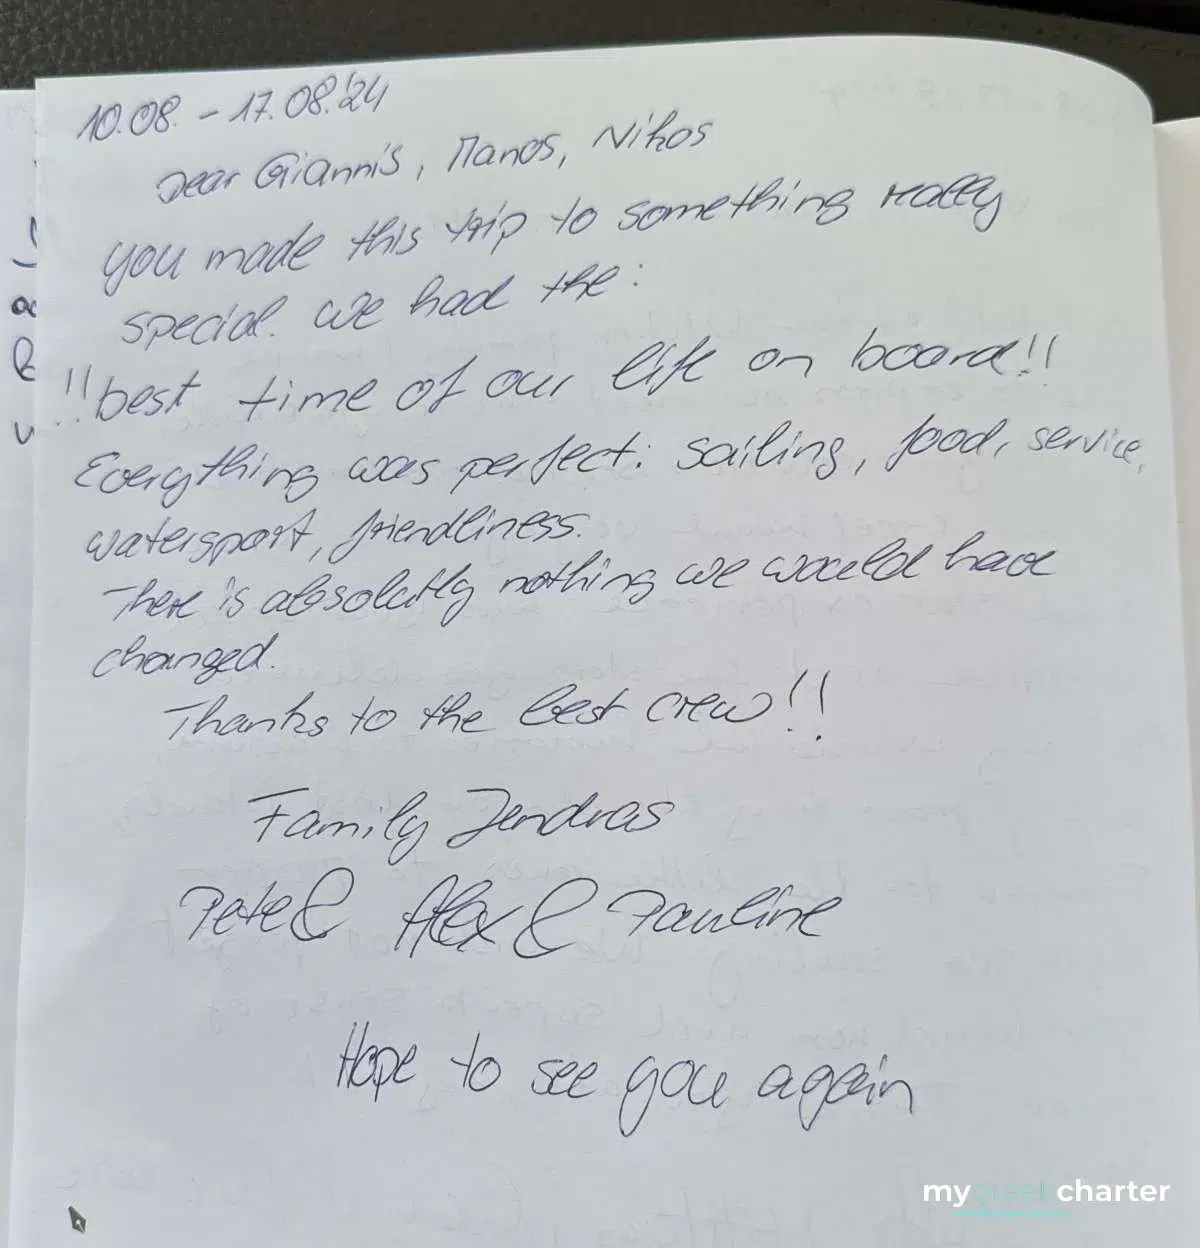 10.08. - 17.08.'24
Dear Giannis, Manos, Nikos
you made this trip to something really
special. we had the:
!!best time of our life on board!!
Everything was perfect: sailing, food, service,
watersport, friendliness.
There is absolutly nothing we would have
changed.
Thanks to the best crew!!
Family Jendras
Pete & Alex & Pauline
Hope to see you again
mygreekcharter